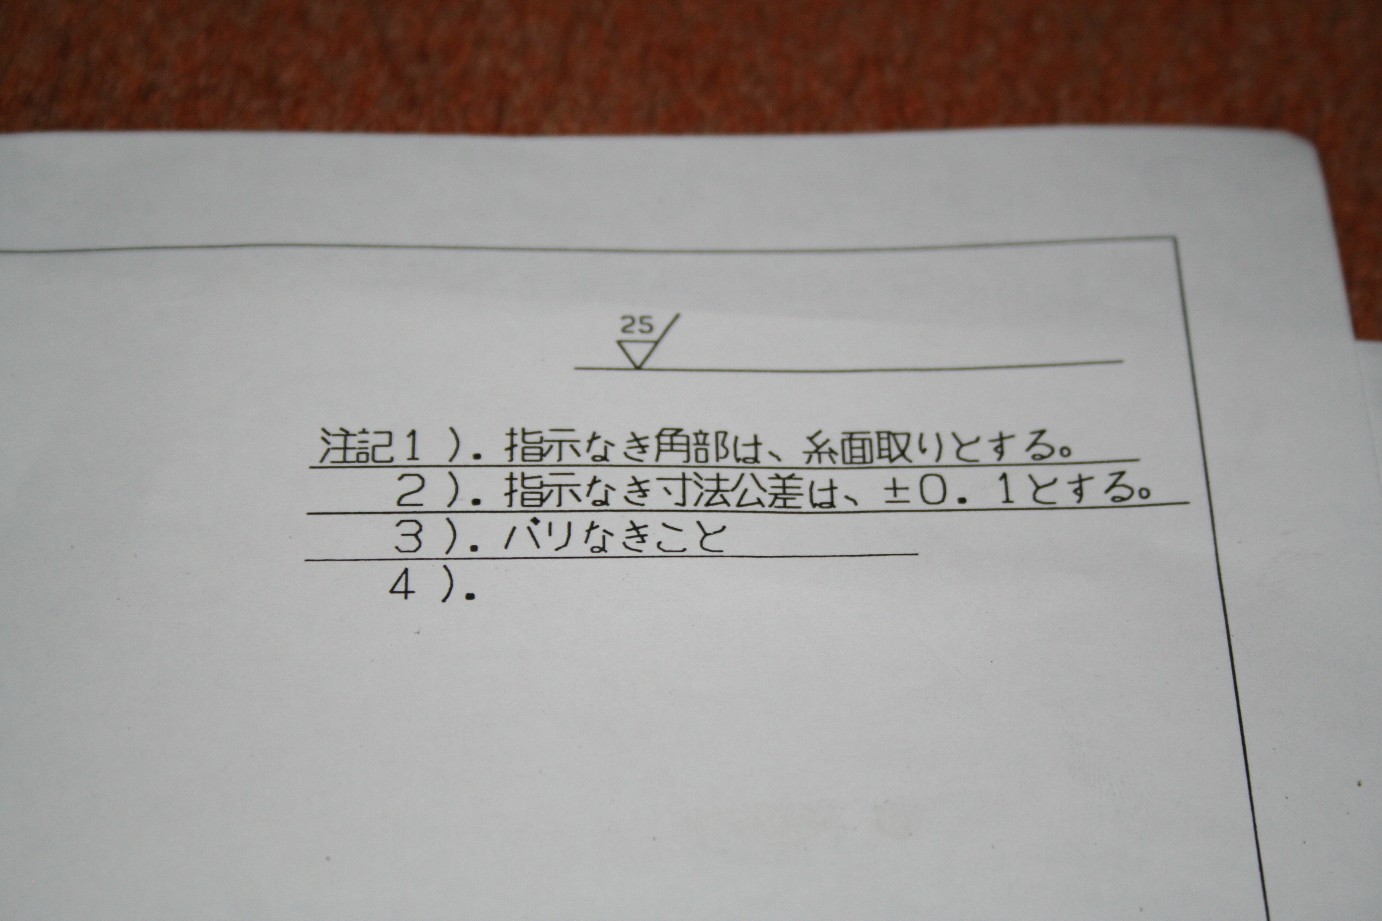 25
注記1）．指示なき角部は、糸面取りとする。
2）．指示なき寸法公差は、±0．1とする。
3）．バリなきこと
4）．